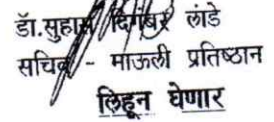 डॉ.सुहास दिगंबर लांडे
सचिव - माऊली प्रतिष्ठान
लिहून घेणार